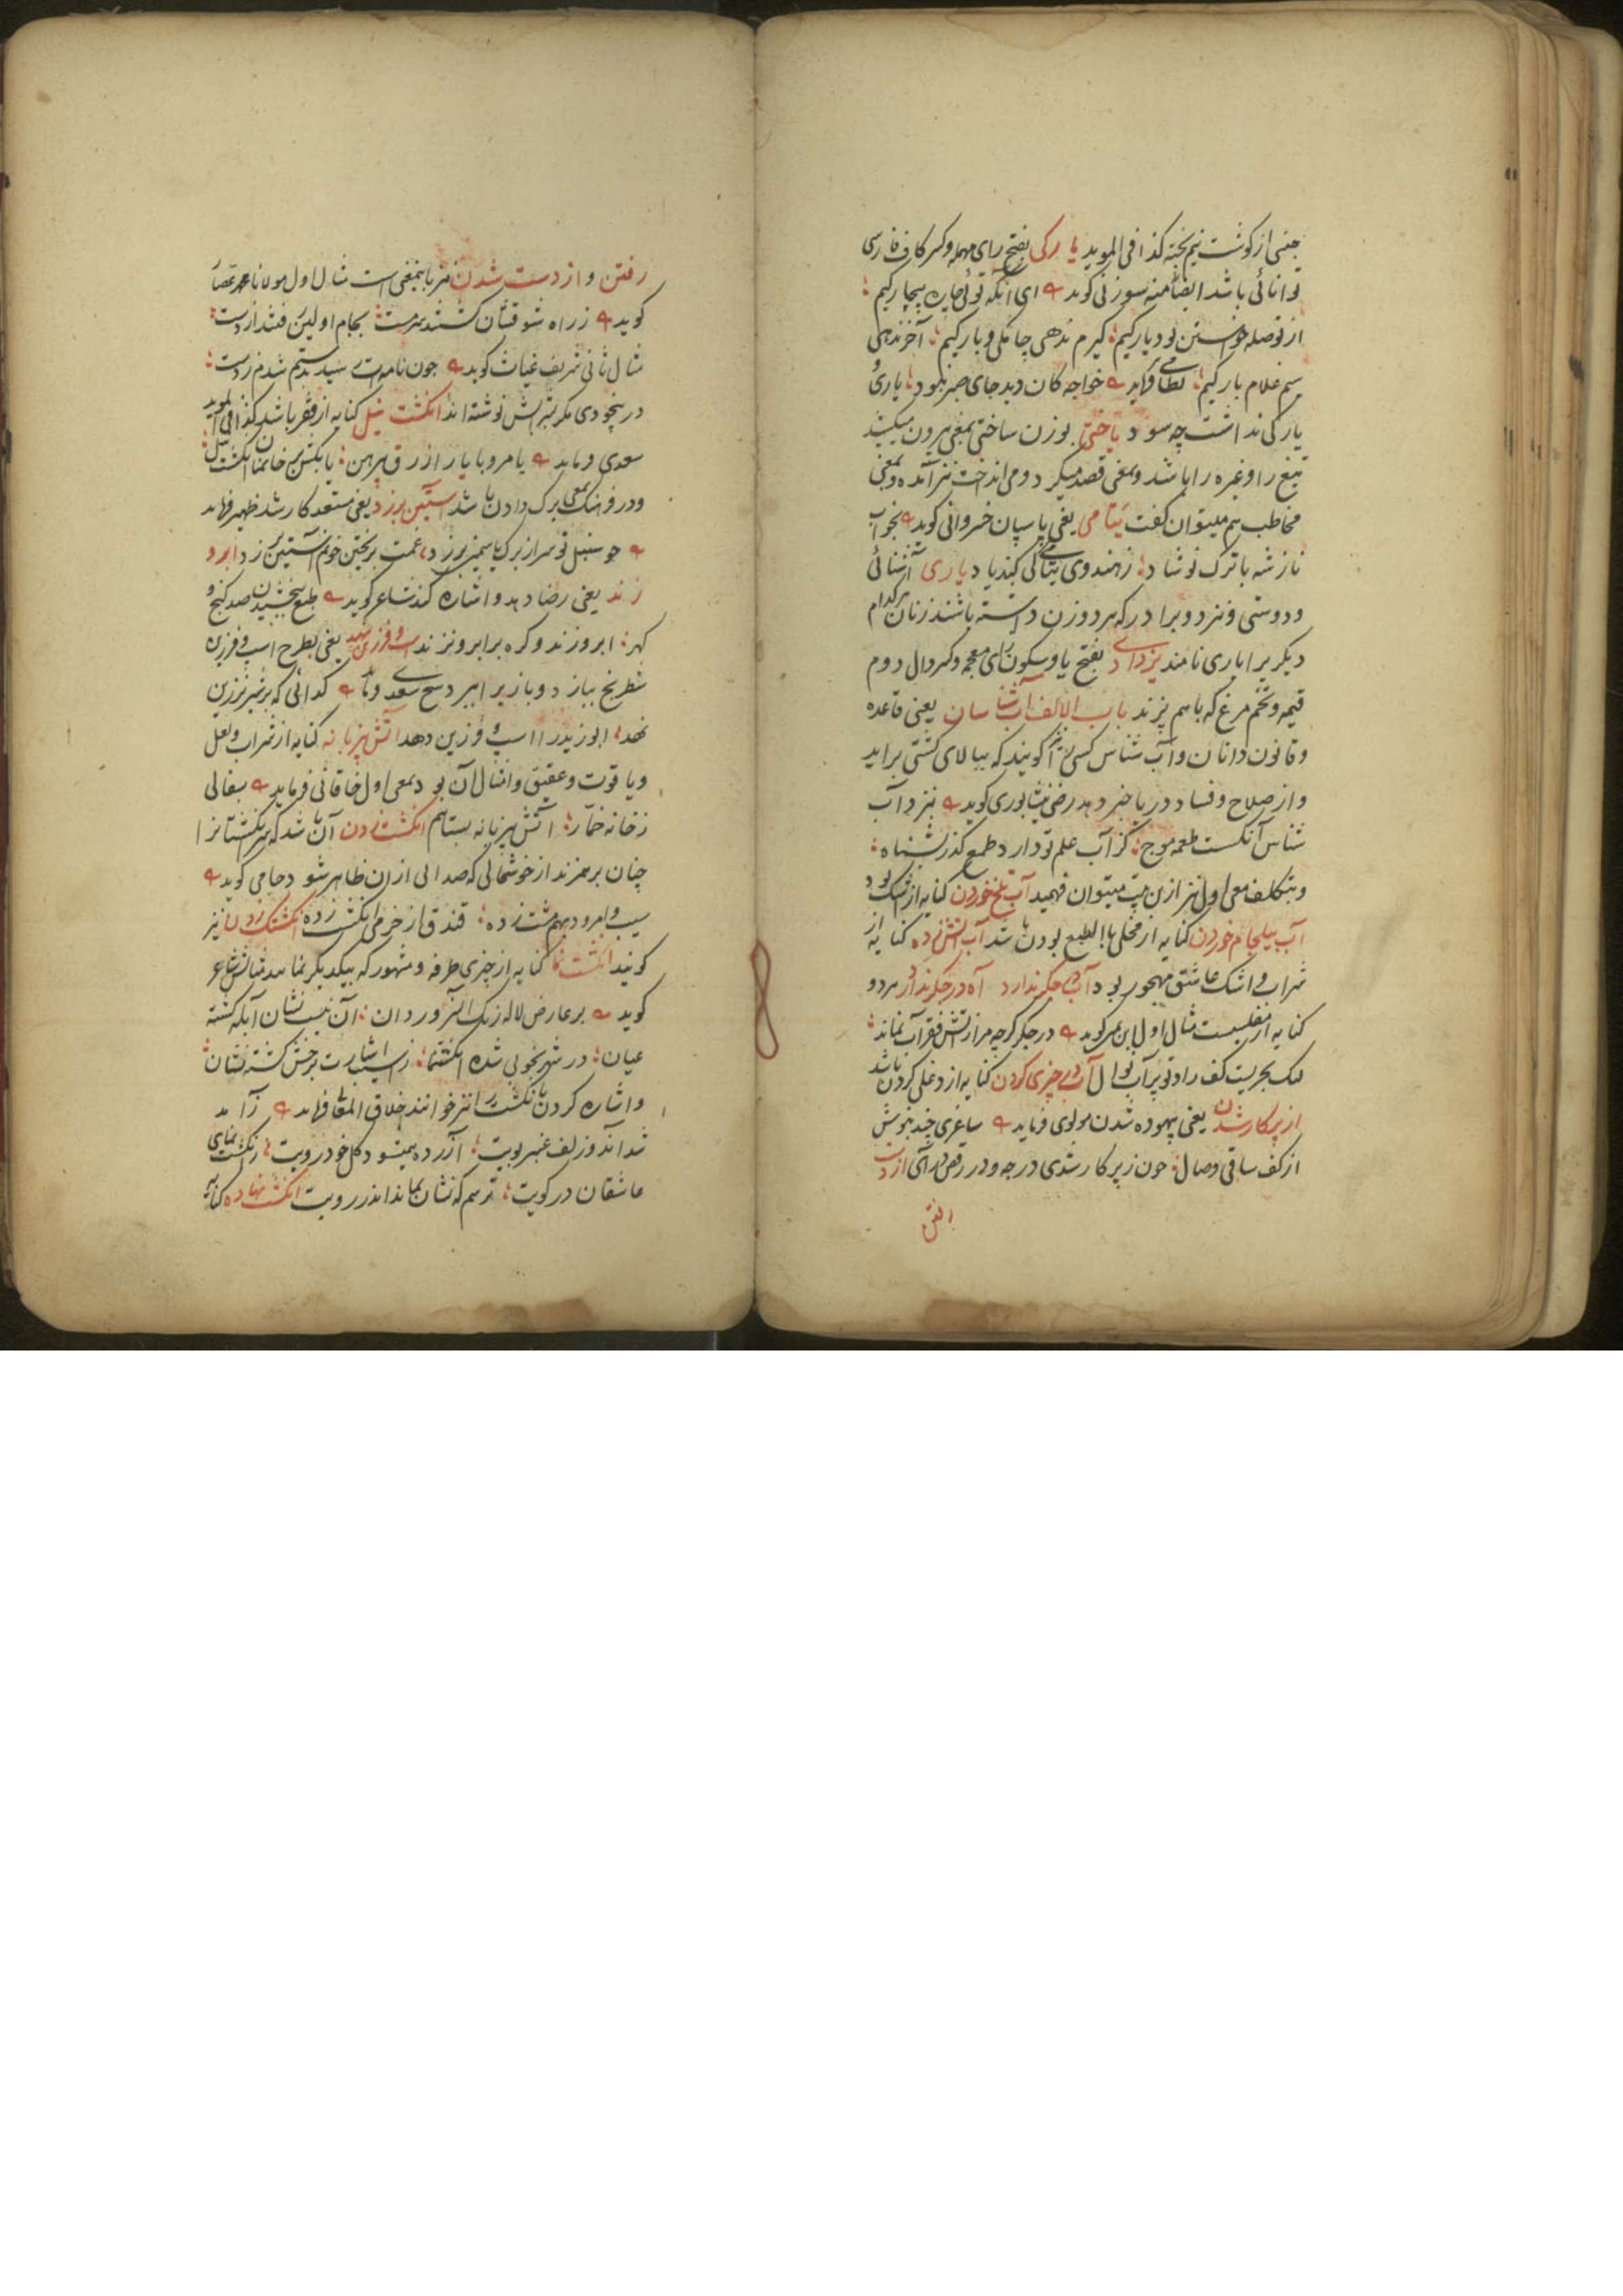 جنسی از گوشت نیم پخته کذا فی الموید یارکی بفتح رای مهمله و کسر کاف فارسی
توانائی باشد ایضا منه سوزنی گوید ای آنکه توئی چاره بیچارگیم
از تو صله خواستن بود یارگیم گیرم ندهی جامگی و بارگیم آخر ندهی
سیم غلام بارگیم نظامی فرماید خواجه کان دید جای صبر نبود یاری و
یارگی نداشت چه سود یاختی بوزن ساختی بمعنی بیرون میکشید
تیغ را و غیره را باشد و بمعنی قصد میکرد و می انداخت نیز آمده و بمعنی
مخاطب هم میتوان گفت یتامی یعنی پاسپان خسروانی گوید بخواب
ناز شه با ترک نوشاد ز هندوی یتامی کی کند یاد یاری آشنائی
و دوستی و نیز دو برادر که هر دو زن داشته باشند زنان هرکدام
دیگر یرا یاری نامند یزدادی بفتح یا و سکون زای معجمه و کسر دال دوم
قیمه و تخم مرغ که با هم پزند باب الالف آب شناسان یعنی قاعده
و قانون دانان و آب شناس کسی را گویند که ببالای کشتی براید
و از صلاح و فساد دریا خبر دهد رضی نیشابوری گوید نیز د آب
شناس آنکست طعمه موج کز آب علم تو دارد طمع گذر بشناه
و بتکلف معنی اول نیز ازین بیت میتوان فهمید آب تلخ خوردن کنایه از اشک بود
آب بیلجام خوردن کنایه از مخلی بالطبع بودن باشد آب آتش زده کنایه از
شراب و اشک عاشق مهجور بود آب در جگر ندارد آه در جگر ندارد هر دو
کنایه از مفلسیست مثال اول ابن یمین گوید در جگر گرچه مرا ز آتش فقر آب نماند
لیک بحریست کف راد تو پر آب نوال آب در چیزی کردن کنایه از دغلی کردن باشد
از پرکار شدن یعنی بیهوده شدن مولوی فرماید ساغری چند بنوش
از کف ساقی وصال چون ز پرکار شدی درجه و در رقص در آی از دست
رفتن
رفتن و از دست شدن نیز باینمعنی است مثال اول مولانا محمد عصار
گوید ز راه شوقشان گشتند سرمست بجام اولین رفتند از دست
مثال ثانی شریف غیاث گوید چون نامه ات رسید بدستم شدم ز دست
در بیخودی مگر بشرابش نوشته اند انگشت نیل کنایه از فقر باشد کذا فی الموید
سعدی فرماید یا مرو با یار ازرق پیرهن یا بکش بر خانمان انگشت نیل
و در فرهنگ بمعنی برک دادن باشد آستین برزد یعنی مستعد کار شد ظهیر فرماید
چو سنبل تو سر از برک یاسمین برزد غمت بریختن خونم آستین برزد ابرو
زند یعنی رضا دهد و اشاره کند شاعر گوید طبع ببخشیدن صد گنج و
گهر ابرو زند و کره بر ابرو نزند اسپ و فرزین نهد یعنی بطرح اسپ و فرزین
شطرنج بیازد و باز بر آبید شیخ سعدی فرماید گدائی که بر شیر نر زین
نهد ابو زید را اسپ و فرزین دهد آتش بی زبانه کنایه از شراب و لعل
و یاقوت و عقیق و امثال آن بود بمعنی اول خاقانی فرماید بسفالی
ز خانه خمار آتش بی زبانه بستانیم انگشت زدن آن باشد که سر انگشتانرا
چنان بر هم زند از خوشحالی که صدائی ازان ظاهر شود جامی گوید
سیب و امرود بهم مشت زده فندق از خرمی انگشت زده انگشتک زدن نیز
گویند انگشت نما کنایه از چیزی طرفه و مشهور که بیکدیگر نمایند مثالش شاعر
گوید بر عارض لاله رنگ آن سرو روان آن نیست نشان آبله گشته
عیان در شهر بخوبی شده انگشتنما ز آسیب اشارت برخش گشته نشان
و اشاره کردن بانگشت را نیز خوانند خلاق المعانی فرماید ز آمد
شد آندو زلف عنبر بویت آزرده میشود گل خود رویت ز انگشت نمای
عاشقان در کویت ترسم که نشان بماند اندر رویت انگشت نهاده کنایه